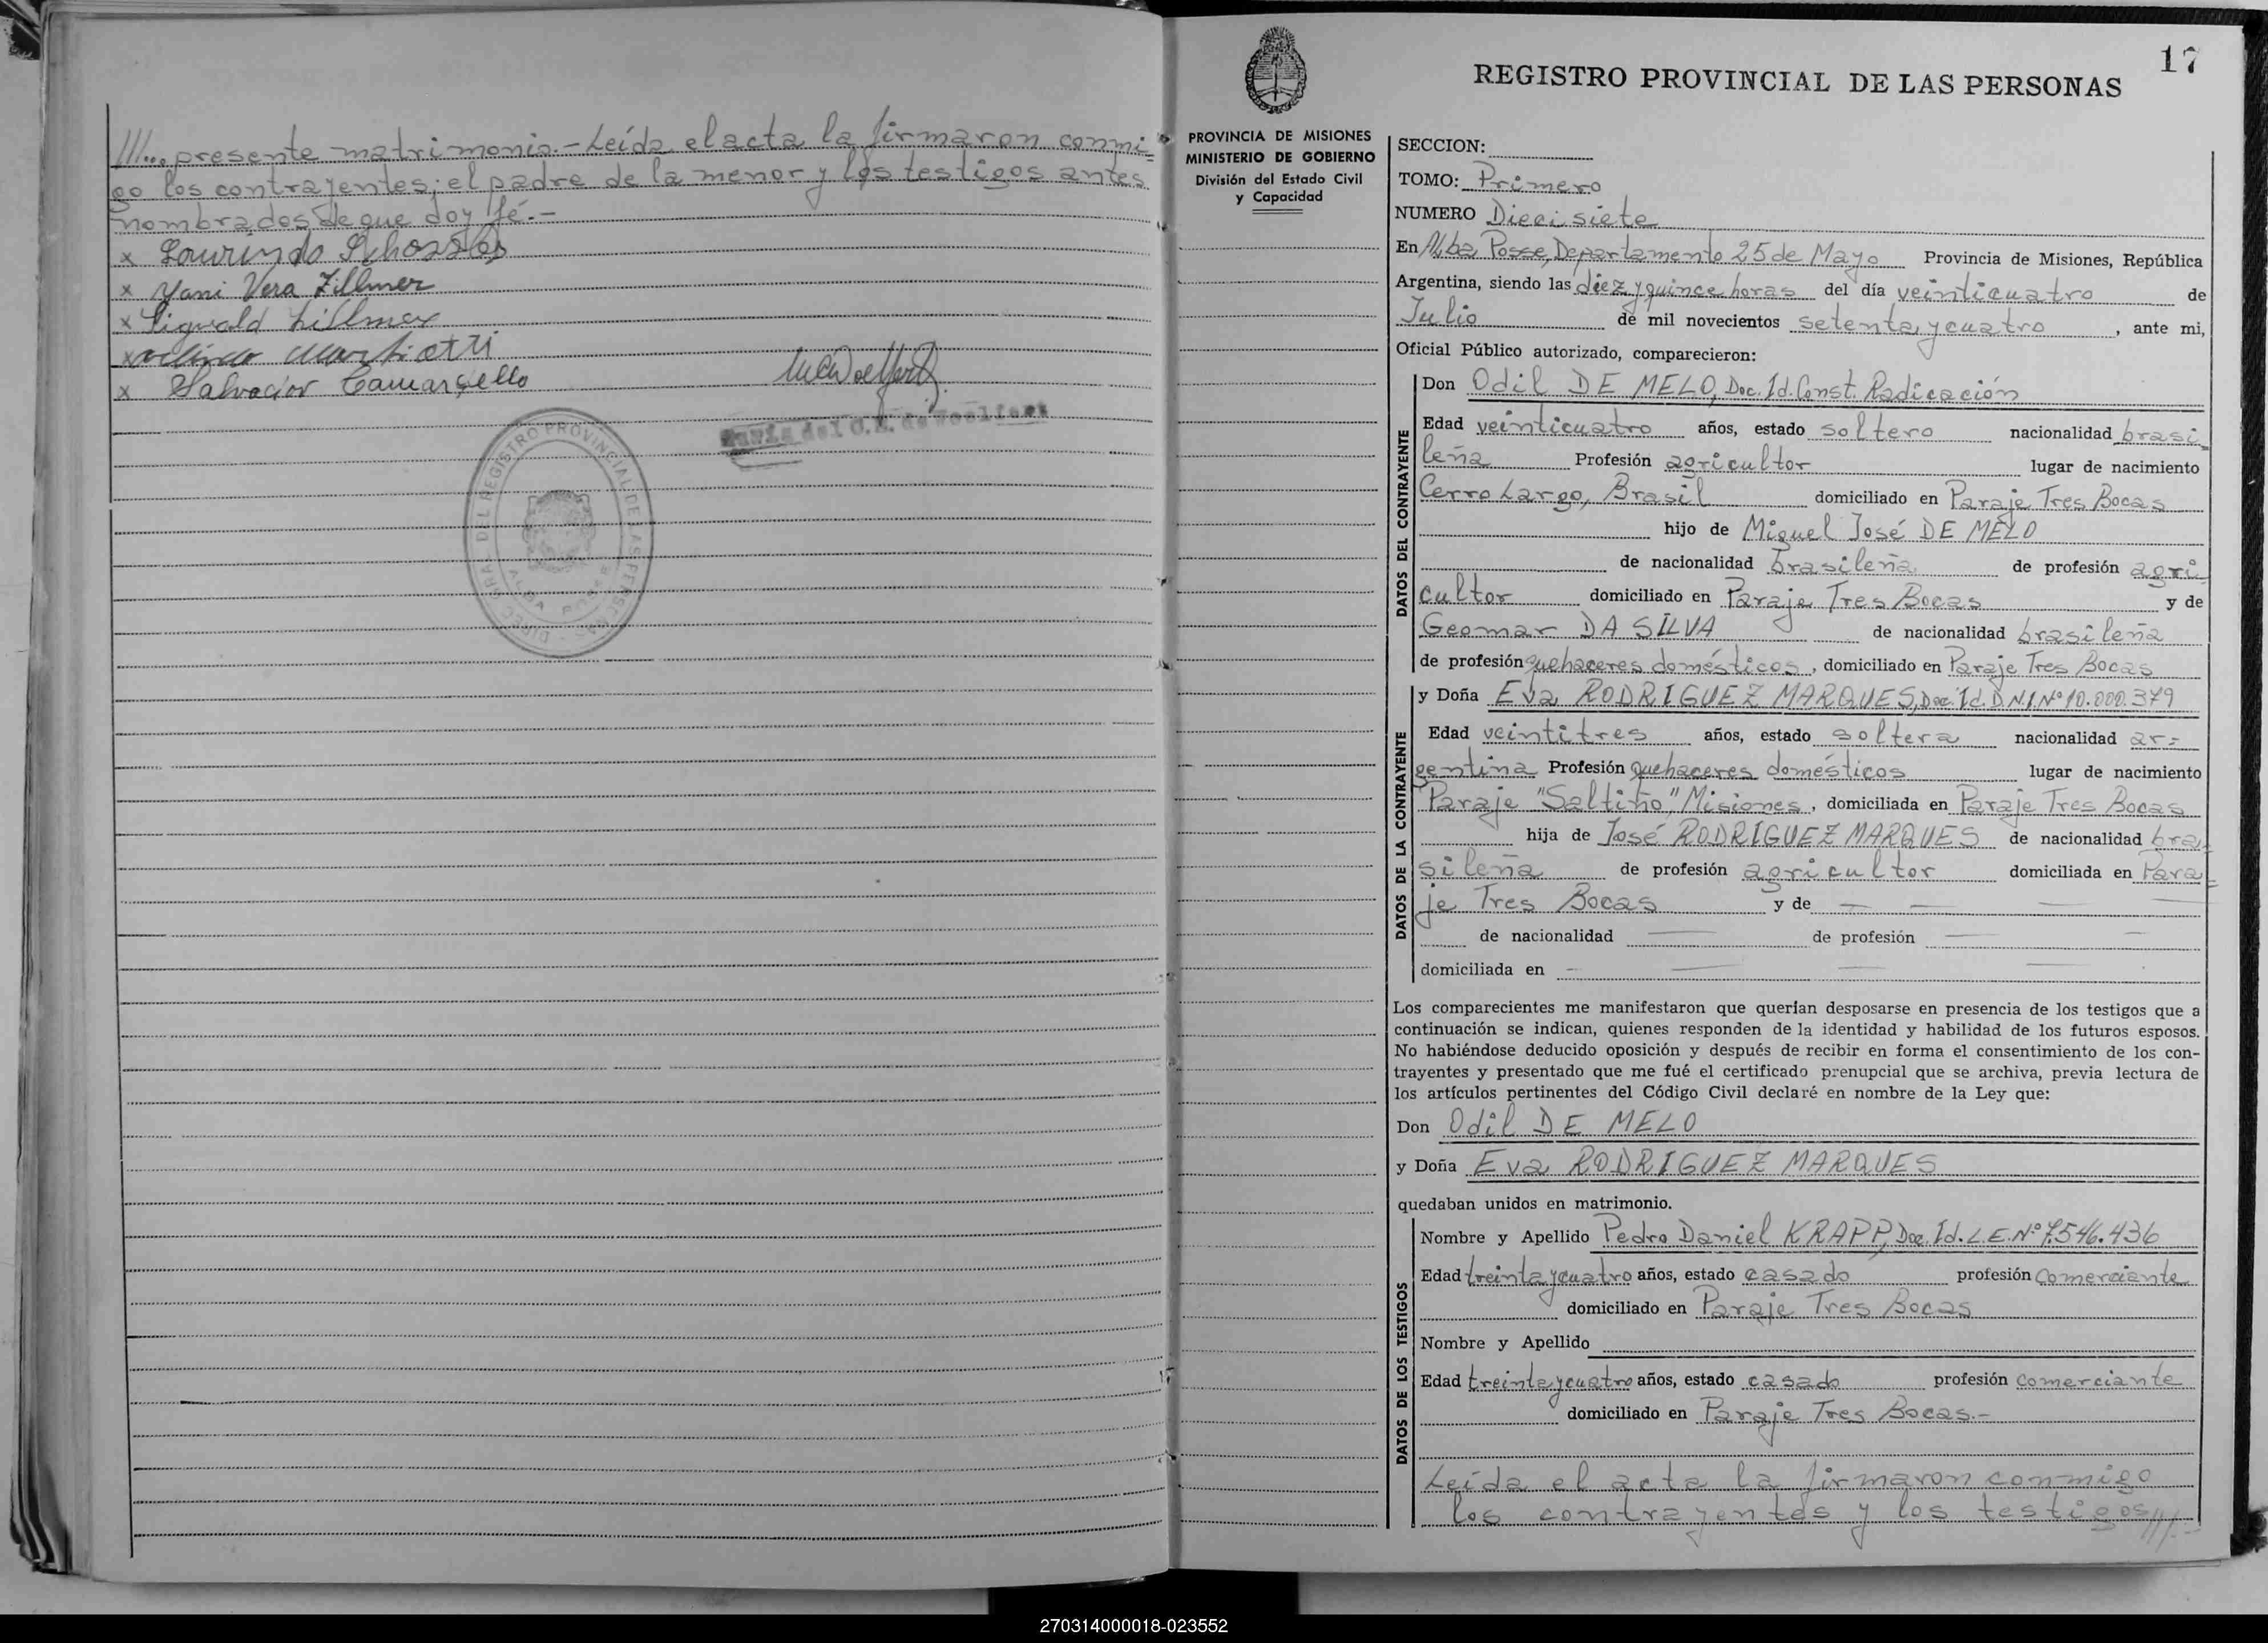 ///... presente matrimonio.- Leída el acta la firmaron conmi=
go los contrayentes; el padre de la menor y los testigos antes
nombrados de que doy fé.-
x Laurindo
x Yani Vera Zillmer
x Sigvald Zillmer
x
x Salvador Camargello
María del C. R. de Woelfert
DEL REGISTRO PROVINCIAL DE LAS PERSONAS
ALBA POSSE
17
REGISTRO PROVINCIAL DE LAS PERSONAS
PROVINCIA DE MISIONES
MINISTERIO DE GOBIERNO
División del Estado Civil
y Capacidad
SECCION:
TOMO: Primero
NUMERO Diecisiete
En Alba Posse, Departamento 25 de Mayo Provincia de Misiones, República
Argentina, siendo las diez y quince horas del día veinticuatro de
Julio de mil novecientos setenta y cuatro, ante mi,
Oficial Público autorizado, comparecieron:
DATOS DEL CONTRAYENTE
Don Odil DE MELO, Doc. Id. Const. Radicación
Edad veinticuatro años, estado soltero nacionalidad brasi_
leña Profesión agricultor lugar de nacimiento
Cerro Largo, Brasil domiciliado en Paraje Tres Bocas
hijo de Miguel José DE MELO
de nacionalidad brasileña de profesión agri_
cultor domiciliado en Paraje Tres Bocas y de
Geomar DA SILVA de nacionalidad brasileña
de profesión quehaceres domésticos, domiciliado en Paraje Tres Bocas
DATOS DE LA CONTRAYENTE
y Doña Eva RODRIGUEZ MARQUES, Doc. Id. D.N.I. Nº 10.000.379
Edad veintitres años, estado soltera nacionalidad ar=
gentina Profesión quehaceres domésticos lugar de nacimiento
Paraje "Saltiño", Misiones, domiciliada en Paraje Tres Bocas
hija de José RODRIGUEZ MARQUES de nacionalidad bra=
sileña de profesión agricultor domiciliada en Para=
je Tres Bocas y de — — — —
de nacionalidad — de profesión — —
domiciliada en - — — —
Los comparecientes me manifestaron que querían desposarse en presencia de los testigos que a
continuación se indican, quienes responden de la identidad y habilidad de los futuros esposos.
No habiéndose deducido oposición y después de recibir en forma el consentimiento de los con-
trayentes y presentado que me fué el certificado prenupcial que se archiva, previa lectura de
los artículos pertinentes del Código Civil declaré en nombre de la Ley que:
Don Odil DE MELO
y Doña Eva RODRIGUEZ MARQUES
quedaban unidos en matrimonio.
DATOS DE LOS TESTIGOS
Nombre y Apellido Pedro Daniel KRAPP, Doc. Id. L.E. Nº 7.546.436
Edad treinta y cuatro años, estado casado profesión comerciante
domiciliado en Paraje Tres Bocas
Nombre y Apellido
Edad treinta y cuatro años, estado casado profesión comerciante
domiciliado en Paraje Tres Bocas.-
Leída el acta la firmaron conmigo
los contrayentes y los testigos///..-
270314000018-023552